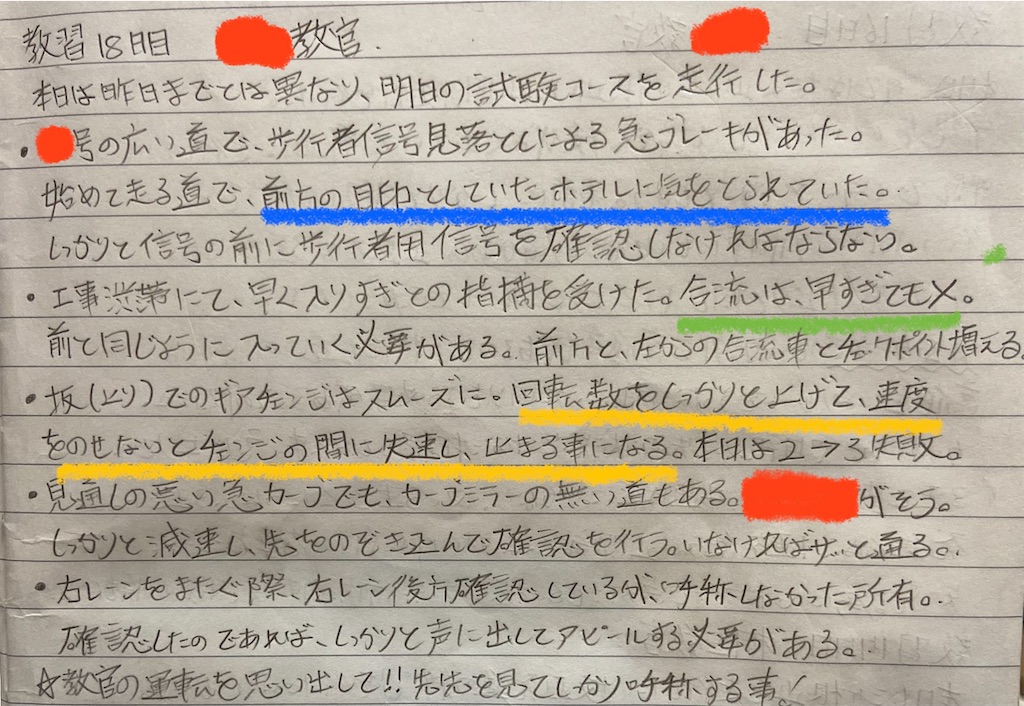 教習18日目 教官.
本日は昨日までとは異なり、明日の試験コースを走行した。
・ 号の広い道で、歩行者信号見落としによる急ブレーキがあった。
始めて走る道で、前方の目印としていたホテルに気をとられていた。
しっかりと信号の前に歩行者用信号を確認しなければならない。
・工事渋滞にて、早く入りすぎとの指摘を受けた。合流は、早すぎても×。
前と同じように入っていく必要がある。前方と、左からの合流車とチェックポイント増える。
・坂(上り)でのギアチェンジはスムーズに。回転数をしっかりと上げて、速度
をのせないとチェンジの間に失速し、止まる事になる。本日は2→3失敗。
・見通しの悪い急カーブでも、カーブミラーの無い道もある。 がそう。
しっかりと減速し、先をのぞき込んで確認を行う。いなければサッと通る。
・右レーンをまたぐ際、右レーン後方確認しているが、呼称しなかった所有。
確認したのであれば、しっかりと声に出してアピールする必要がある。
☆教官の運転を思い出して!!先先を見てしっかり呼称する事!